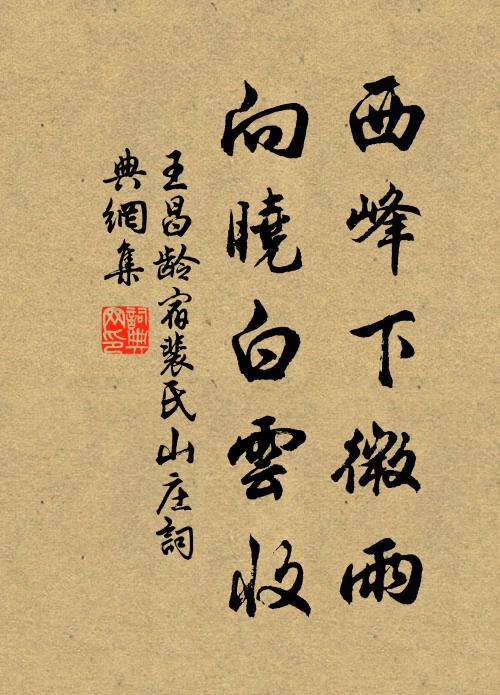 西峰下微雨
向曉白雲收
王昌龄宿裴氏山庄詞
典網集
詞典網印